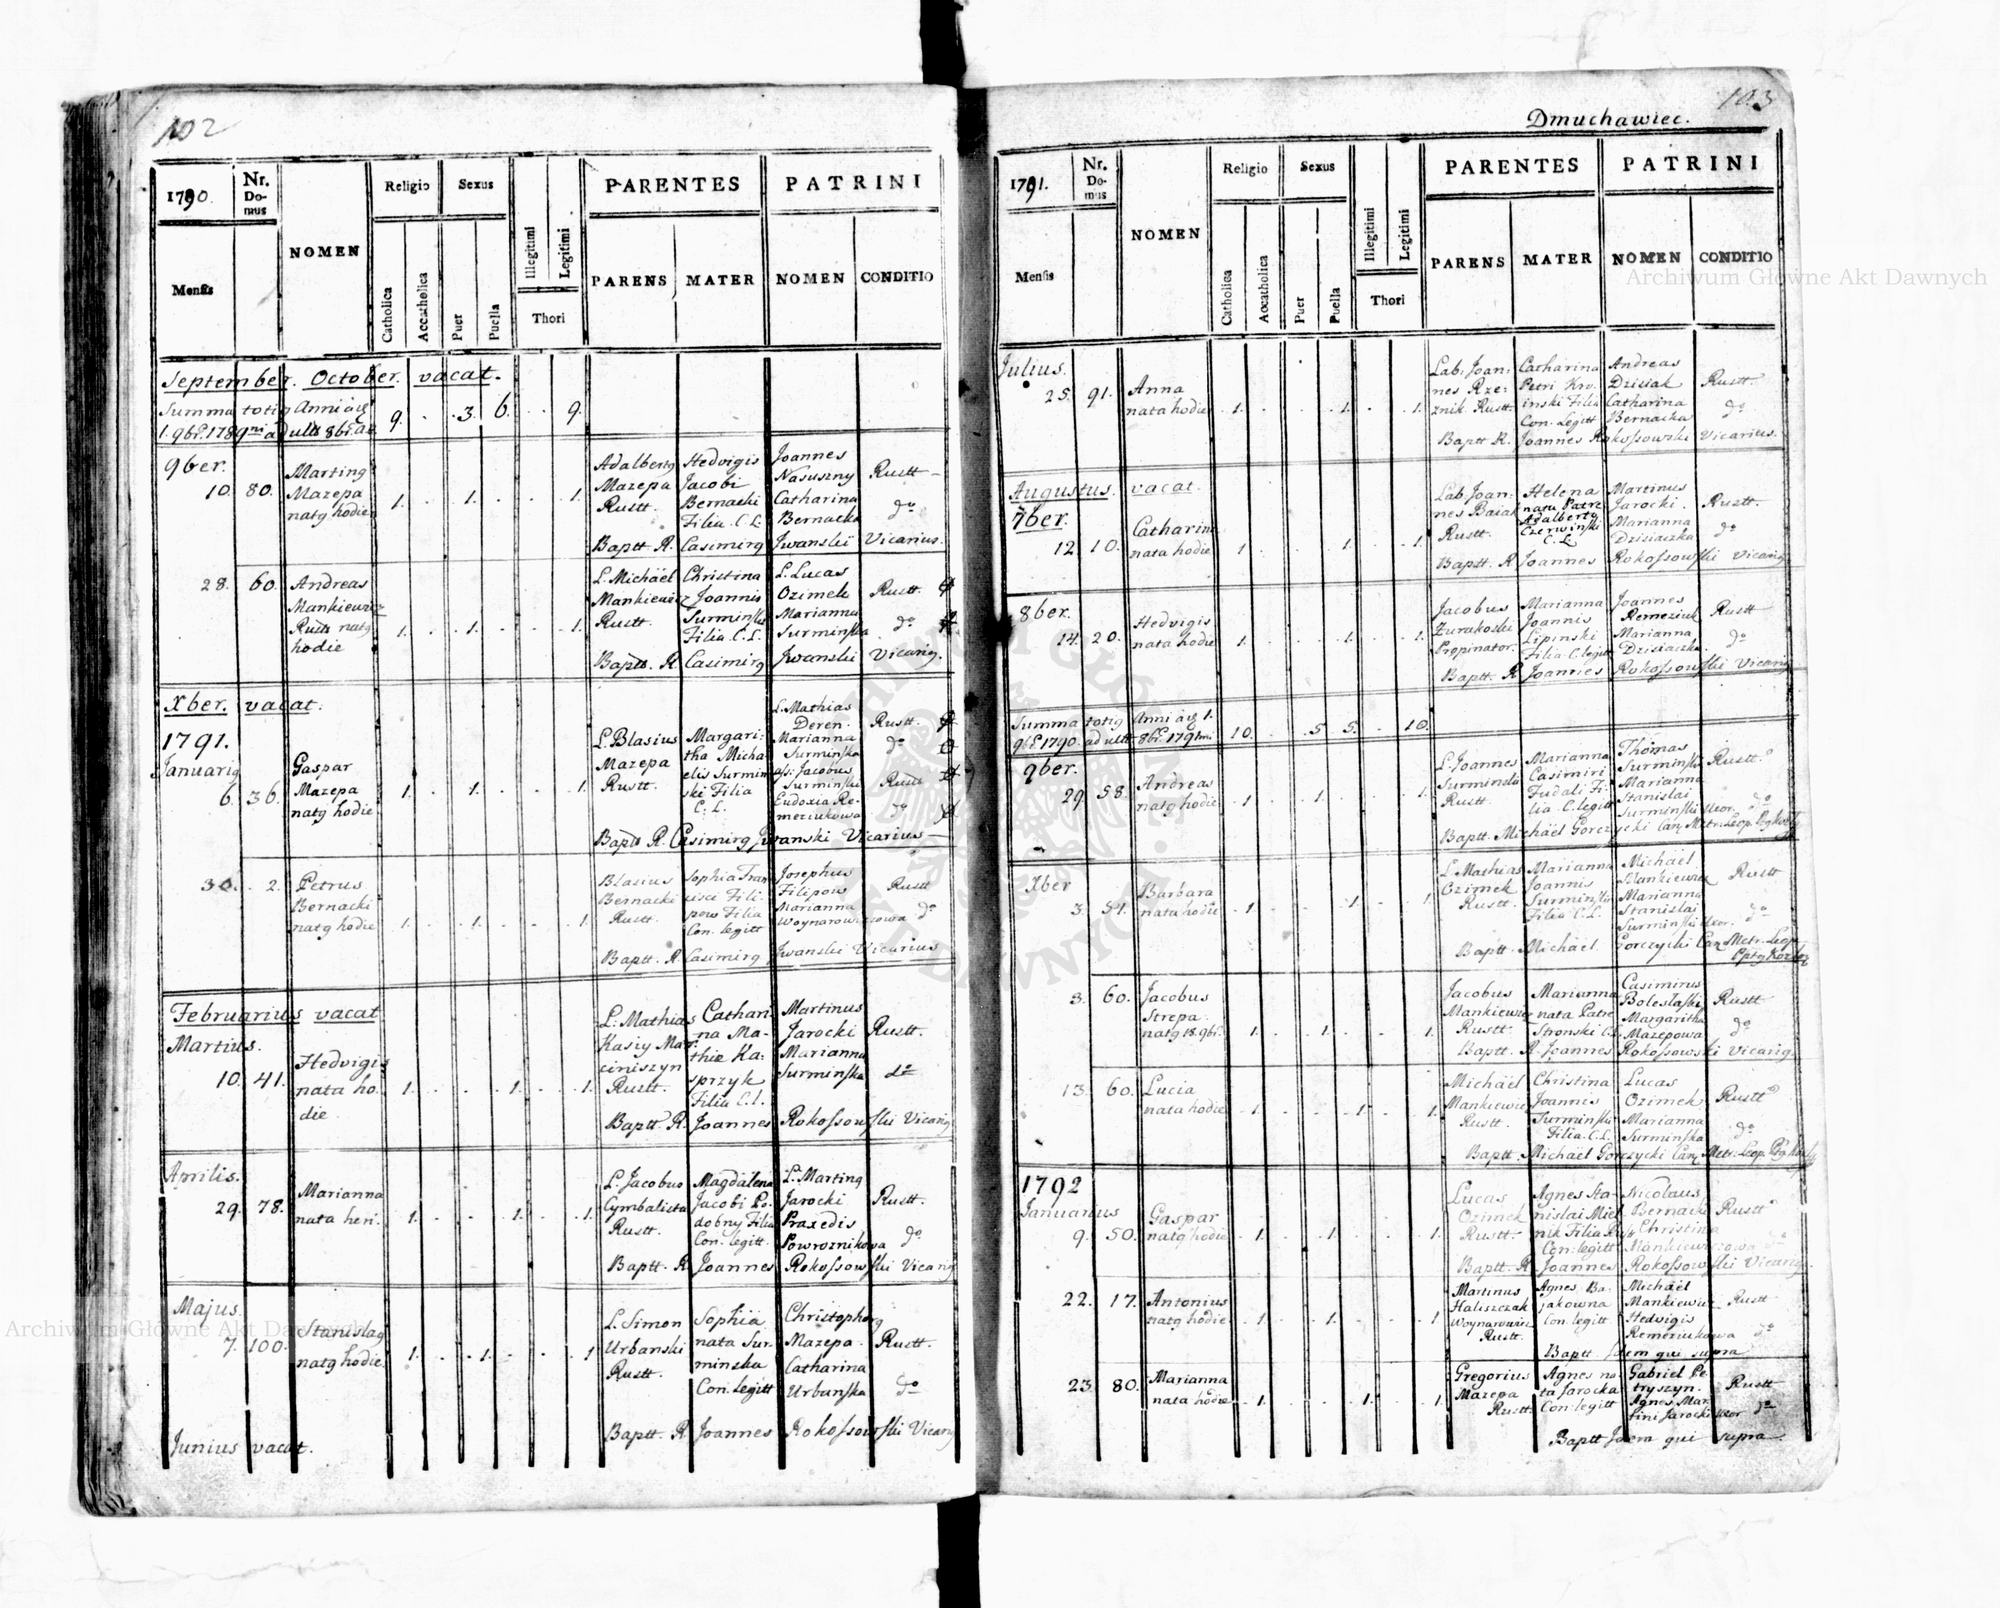 102
1790.
Nr. Domus
NOMEN
Religio
Sexus
PARENTES
PATRINI
Mensis
Catholica
Accatholica
Puer
Puella
Illegitimi
Legitimi
Thori
PARENS
MATER
NOMEN
CONDITIO
September. October. vacat.
Summa totiq Anni àiq 9. . 3. 6. . 9.
1. 9br. 1789ni ad ult 8br. az
9ber.
10. 80.
Martinq
Mazepa
natq hodie
1. . 1. . . 1.
Adalbertq
Mazepa
Rustt.
Hedvigis
Jacobi
Bernacki
Filia. C. L.
Joannes
Nasuszny
Catharina
Bernacka
Rustt
do
Baptt. R. Casimirq Jwanski Vicarius.
28. 60.
Andreas
Mankiewicz
Rustt natq
hodie
1. . 1. . . 1.
L. Michaël
Mankiewicz
Rustt.
Christina
Joannis
Surminska
Filia. C. L.
L. Lucas
Ozimek
Marianna
Surminska
Rustt.
do
Baptt. R. Casimirq Jwanski Vicariq.
Xber. vacat.
1791.
Januariq
6. 36.
Gaspar
Mazepa
natq hodie
1. . 1. . . 1.
L. Blasius
Mazepa
Rustt.
Margari-
tha Micha-
elis Surmin
ski Filia
C. L.
L. Mathias
Deren.
Marianna
Surminska
ass: Jacobus
Surminski
Eudoxia Re-
meziukowa
Rustt.
do
Rustt
do
Baptt R. Casimirq Jwanski Vicarius
30. 2.
Petrus
Bernacki
natq hodie
1. . 1. . . 1.
Blasius
Bernacki
Rustt.
Sophia Fran
cisci Fili-
pow Filia
Con. legitt
Josephus
Filipow
Marianna
Woynarowiczowa
Rustt
do
Baptt. R. Casimirq Jwanski Vicarius
Februarius vacat
Martius.
10. 41.
Hedvigis
nata ho-
die.
1. . . 1. . 1.
L: Mathias
Kasiy Mar-
ciniszyn
Rustt.
Cathari-
na Ma-
thiæ Ka-
sprzyk
Filia C. l.
Martinus
Jarocki
Marianna
Surminska
Rustt.
do
Baptt. R. Joannes Rokossowski Vicariq
Aprilis.
29. 78.
Marianna
nata heri.
1. . . 1. . 1.
L. Jacobus
Cymbalista
Rustt.
Magdalena
Jacobi Po-
dobny Filia
Con. legitt.
L. Martinq
Jarocki
Praxedis
Powroznikowa
Rustt.
do
Baptt. R. Joannes Rokossowski Vicariq
Majus.
7. 100.
Stanislaq
natq hodie
1. . 1. . . 1
L. Simon
Urbanski
Rustt.
Sophia
nata Sur-
minska
Con. legitt
Christophorq
Mazepa.
Catharina
Urbanska
Rustt.
do
Baptt. R Joannes Rokossowski Vicariq
Junius vacat.
103
Dmuchawiec.
1791.
Nr. Domus
NOMEN
Religio
Sexus
PARENTES
PATRINI
Mensis
Catholica
Accatholica
Puer
Puella
Illegitimi
Legitimi
Thori
PARENS
MATER
NOMEN
CONDITIO
Julius.
25. 91.
Anna
nata hodie
1. . . 1. . 1.
Lab: Joan-
nes Rze-
znik Rustt.
Catharina
Petri Kro-
inski Filia
Con. Legitt
Andreas
Dzisiak
Catharina
Bernacka
Rustt.
do
Baptt R. Joannes Rokossowski Vicarius.
Augustus. vacat.
7ber.
12. 10.
Catharina
nata hodie
1 . . 1. . 1.
Lab. Joan-
nes Baiak
Rustt.
Helena
nata Patre
Adalbertq
Czerwinski
C. L.
Martinus
Jarocki.
Marianna
Dzisiaczka
Rustt.
do
Baptt. R Joannes Rokossowski Vicariq
8ber.
14. 20.
Hedvigis
nata hodie
1. . . 1. . 1.
Jacobus
Zurakoski
Propinator.
Marianna
Joannis
Lipinski
Filia. C. legitt
Joannes
Remeziuk
Marianna
Dzisiaczka
Rustt
do
Baptt. R Joannes Rokossowski Vicariq
Summa totiq Anni àiq 1. 10. . 5 5. . 10.
9br. 1790. ad ult 8br. 1791mi
9ber.
29. 58.
Andreas
natq hodie
1. . 1. . . 1.
L. Joannes
Surminski
Rustt.
Marianna
Casimiri
Fudali Fi-
lia C. legitt
Thomas
Surminski
Marianna
Stanislai
Surminski Uxor.
Rustt
do
Baptt. Michaël Gorczycki Can. Metr. Leop.
Xber
3. 51.
Barbara
nata hodie
1. . . 1. . 1.
L. Mathias
Ozimek
Rustt.
Marianna
Joannis
Surminski
Filia C. L.
Michaël
Mankiewicz
Marianna
Stanislai
Surminski Uxor.
Rustt
do
Baptt. Michaël Gorczycki Can. Metr. Leop.
3. 60.
Jacobus
Strepa.
natq 18. 9br.
1. . 1. . . 1.
Jacobus
Mankiewicz
Rustt.
Marianna
nata Patre
Stronski C. L.
Casimirus
Boleslaski
Margaritha
Mazepowa
Rustt
do
Baptt. R. Joannes Rokossowski Vicariq
13. 60.
Lucia
nata hodie
1. . . 1. . 1.
Michaël
Mankiewicz
Rustt.
Christina
Joannis
Surminski
Filia. C. L.
Lucas
Ozimek
Marianna
Surminska
Rustt
do
Baptt. Michaël Gorczycki Can. Metr. Leop.
1792
Januarius
9. 50.
Gaspar
natq hodie
1. . 1. . . 1.
Lucas
Ozimek
Rustt.
Agnes Sta-
nislai Miel
nik Filia
Con. legitt
Nicolaus
Bernacki
Christina
Mankiewiczowa
Rustt
Baptt. R Joannes Rokossowski Vicariq.
22. 17.
Antonius
natq hodie
1. . 1. . . 1.
Martinus
Haliszczak
Woynarowicz
Rustt.
Agnes Ba-
jakowna
Con. legitt
Michaël
Mankiewicz
Hedvigis
Remeziukowa
Rustt
do
Baptt. Idem qui supra
23. 80.
Marianna
nata hodie
1. . . 1. . 1.
Gregorius
Mazepa
Rustt.
Agnes na-
ta Jarocka
Con. legitt
Gabriel Pe-
tryszyn.
Agnes Mar-
tini Jarocki Uxor
Rustt
do
Baptt Idem qui supra
Archiwum Główne Akt Dawnych
Archiwum Główne Akt Dawnych